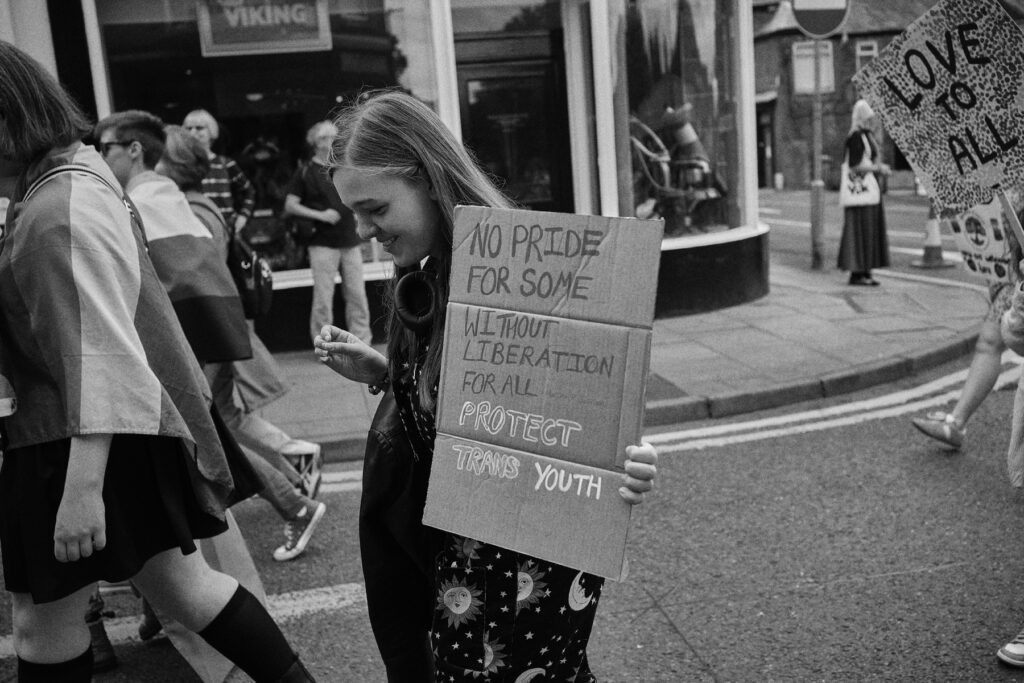 VIKING
LOVE
TO
ALL
NO PRIDE
FOR SOME
WITHOUT
LIBERATION
FOR ALL
PROTECT
TRANS YOUTH